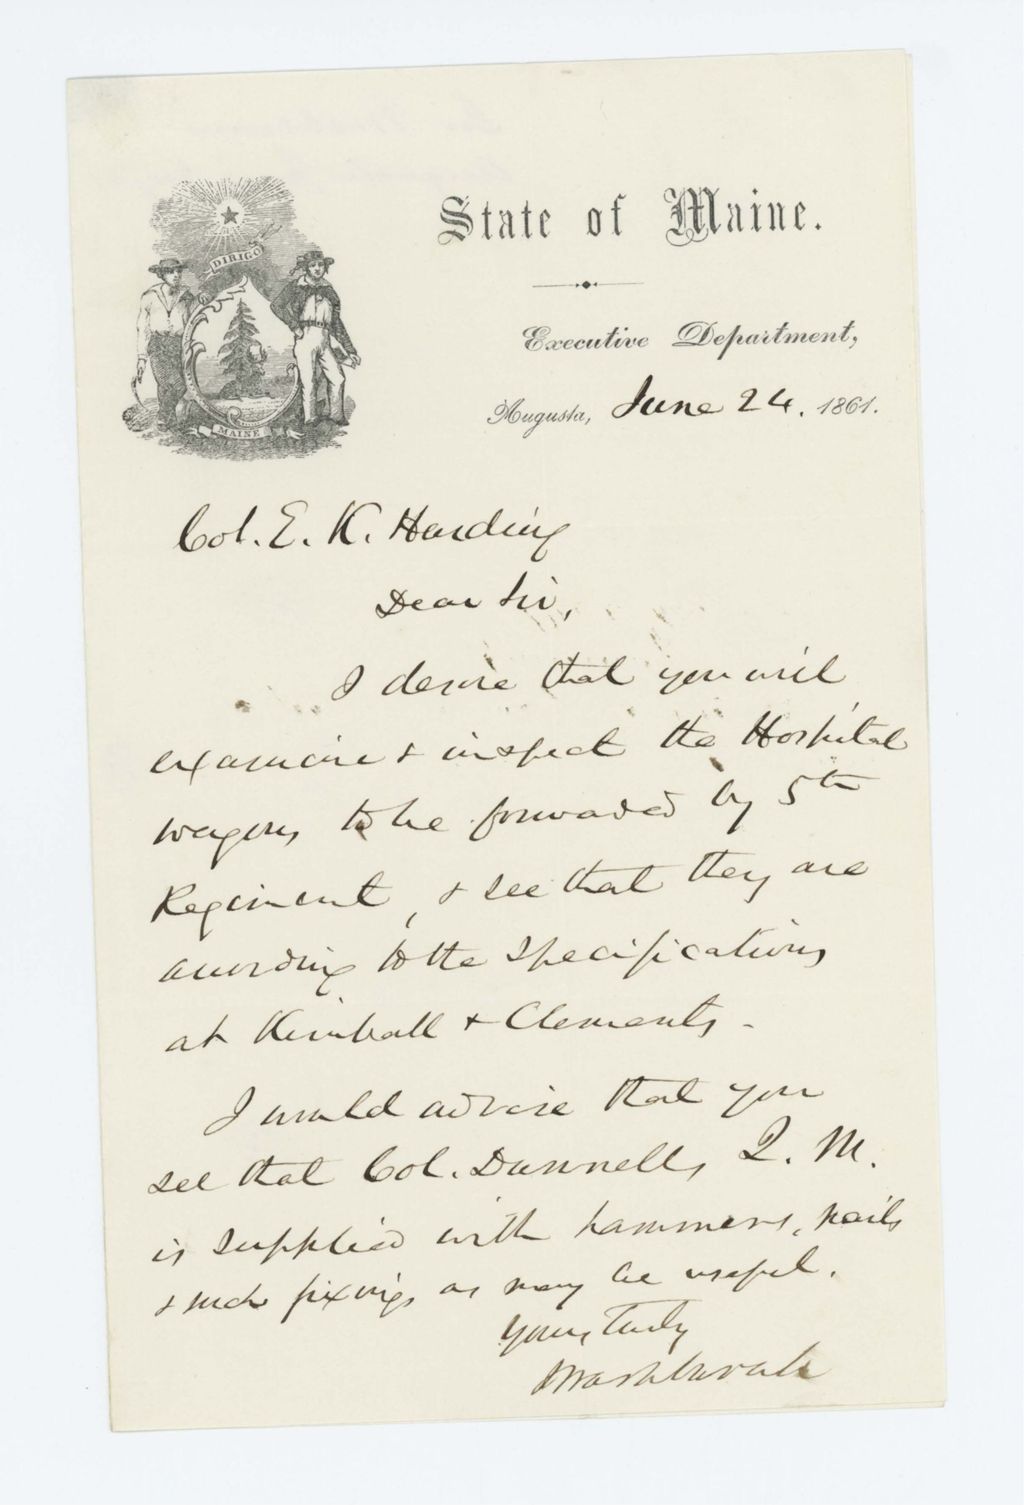 State of Maine.
DIRIGO
MAINE
Executive Department,
Augusta, June 24. 1861.
Col. E. K. Harding
Dear Sir,
I desire that you will
examine & inspect the Hospital
wagons to be forwarded by 5th
Regiment, & see that they are
according to the specifications
at Kimball & Clements.
I would advise that you
see that Col. Dunnells, Q. M.
is supplied with hammers, nails
& such fixings as may be useful.
Yours truly